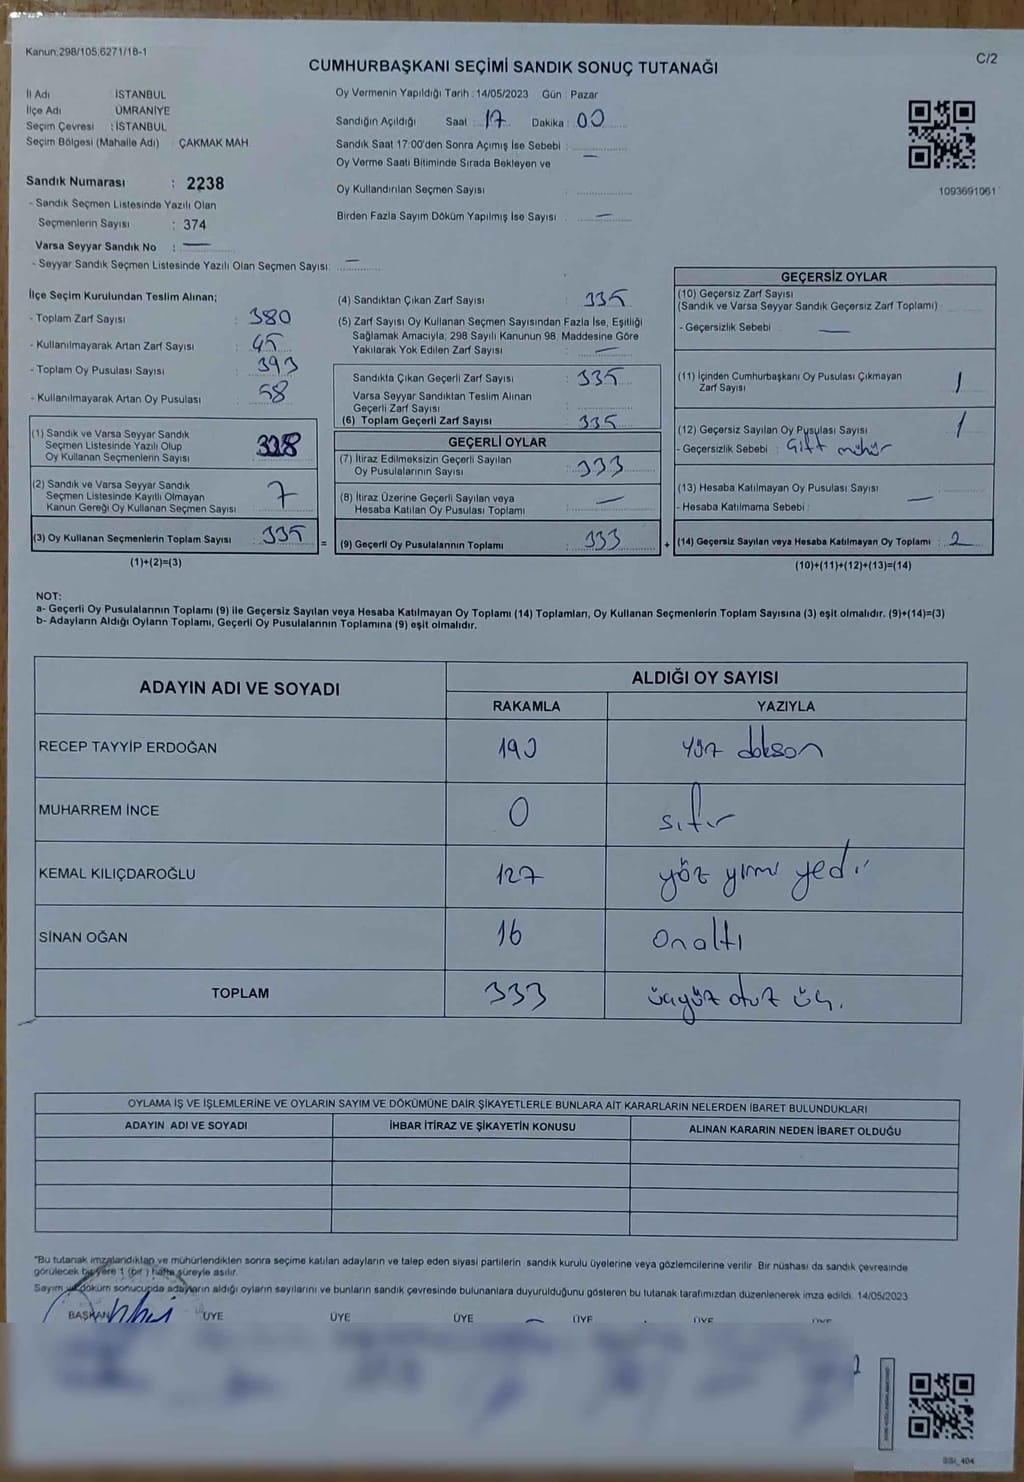 Kanun;298/105,6271/18-1
C/2
CUMHURBAŞKANI SEÇİMİ SANDIK SONUÇ TUTANAĞI
İl Adı İSTANBUL
İlçe Adı ÜMRANİYE
Seçim Çevresi : İSTANBUL
Seçim Bölgesi (Mahalle Adı) : ÇAKMAK MAH
Sandık Numarası : 2238
- Sandık Seçmen Listesinde Yazılı Olan
Seçmenlerin Sayısı : 374
Varsa Seyyar Sandık No : —
- Seyyar Sandık Seçmen Listesinde Yazılı Olan Seçmen Sayısı: —
Oy Vermenin Yapıldığı Tarih : 14/05/2023 Gün : Pazar
Sandığın Açıldığı Saat : 17 Dakika : 00
Sandık Saat 17:00'den Sonra Açımış İse Sebebi :
Oy Verme Saati Bitiminde Sırada Bekleyen ve —
Oy Kullandırılan Seçmen Sayısı :
Birden Fazla Sayım Döküm Yapılmış İse Sayısı : —
1093691061
İlçe Seçim Kurulundan Teslim Alınan;
- Toplam Zarf Sayısı : 380
- Kullanılmayarak Artan Zarf Sayısı : 45
- Toplam Oy Pusulası Sayısı : 393
- Kullanılmayarak Artan Oy Pusulası : 58
(1) Sandık ve Varsa Seyyar Sandık
Seçmen Listesinde Yazılı Olup
Oy Kullanan Seçmenlerin Sayısı : 328
(2) Sandık ve Varsa Seyyar Sandık
Seçmen Listesinde Kayıtlı Olmayan
Kanun Gereği Oy Kullanan Seçmen Sayısı : 7
(3) Oy Kullanan Seçmenlerin Toplam Sayısı : 335
(1)+(2)=(3)
=
(4) Sandıktan Çıkan Zarf Sayısı : 335
(5) Zarf Sayısı Oy Kullanan Seçmen Sayısından Fazla İse, Eşitliği
Sağlamak Amacıyla; 298 Sayılı Kanunun 98. Maddesine Göre
Yakılarak Yok Edilen Zarf Sayısı : —
Sandıkta Çıkan Geçerli Zarf Sayısı : 335
Varsa Seyyar Sandıktan Teslim Alınan
Geçerli Zarf Sayısı :
(6) Toplam Geçerli Zarf Sayısı : 335
GEÇERLİ OYLAR
(7) İtiraz Edilmeksizin Geçerli Sayılan
Oy Pusulalarının Sayısı : 333
(8) İtiraz Üzerine Geçerli Sayılan veya
Hesaba Katılan Oy Pusulası Toplamı : —
(9) Geçerli Oy Pusulalarının Toplamı : 333
+
GEÇERSİZ OYLAR
(10) Geçersiz Zarf Sayısı
(Sandık ve Varsa Seyyar Sandık Geçersiz Zarf Toplamı) :
- Geçersizlik Sebebi : —
(11) İçinden Cumhurbaşkanı Oy Pusulası Çıkmayan
Zarf Sayısı : 1
(12) Geçersiz Sayılan Oy Pusulası Sayısı : 1
- Geçersizlik Sebebi : Çift mühür
(13) Hesaba Katılmayan Oy Pusulası Sayısı : —
- Hesaba Katılmama Sebebi :
(14) Geçersiz Sayılan veya Hesaba Katılmayan Oy Toplamı : 2
(10)+(11)+(12)+(13)=(14)
NOT:
a- Geçerli Oy Pusulalarının Toplamı (9) ile Geçersiz Sayılan veya Hesaba Katılmayan Oy Toplamı (14) Toplamları, Oy Kullanan Seçmenlerin Toplam Sayısına (3) eşit olmalıdır. (9)+(14)=(3)
b- Adayların Aldığı Oyların Toplamı, Geçerli Oy Pusulalarının Toplamına (9) eşit olmalıdır.
ADAYIN ADI VE SOYADI ALDIĞI OY SAYISI
RAKAMLA YAZIYLA
RECEP TAYYİP ERDOĞAN 190 yüz dokson
MUHARREM İNCE 0 sıfır
KEMAL KILIÇDAROĞLU 127 yüz yirmi yedi
SİNAN OĞAN 16 onaltı
TOPLAM 333 üçyüz otuz üç.
OYLAMA İŞ VE İŞLEMLERİNE VE OYLARIN SAYIM VE DÖKÜMÜNE DAİR ŞİKAYETLERLE BUNLARA AİT KARARLARIN NELERDEN İBARET BULUNDUKLARI
ADAYIN ADI VE SOYADI İHBAR İTİRAZ VE ŞİKAYETİN KONUSU ALINAN KARARIN NEDEN İBARET OLDUĞU
*Bu tutanak imzalandıktan ve mühürlendikten sonra seçime katılan adayların ve talep eden siyasi partilerin sandık kurulu üyelerine veya gözlemcilerine verilir. Bir nüshası da sandık çevresinde
görülecek bir yere 1 (bir) hafta süreyle asılır.
Sayım ve döküm sonucunda adayların aldığı oyların sayılarını ve bunların sandık çevresinde bulunanlara duyurulduğunu gösteren bu tutanak tarafımızdan düzenlenerek imza edildi. 14/05/2023
BAŞKAN ÜYE ÜYE ÜYE ÜYE ÜYE ÜYE